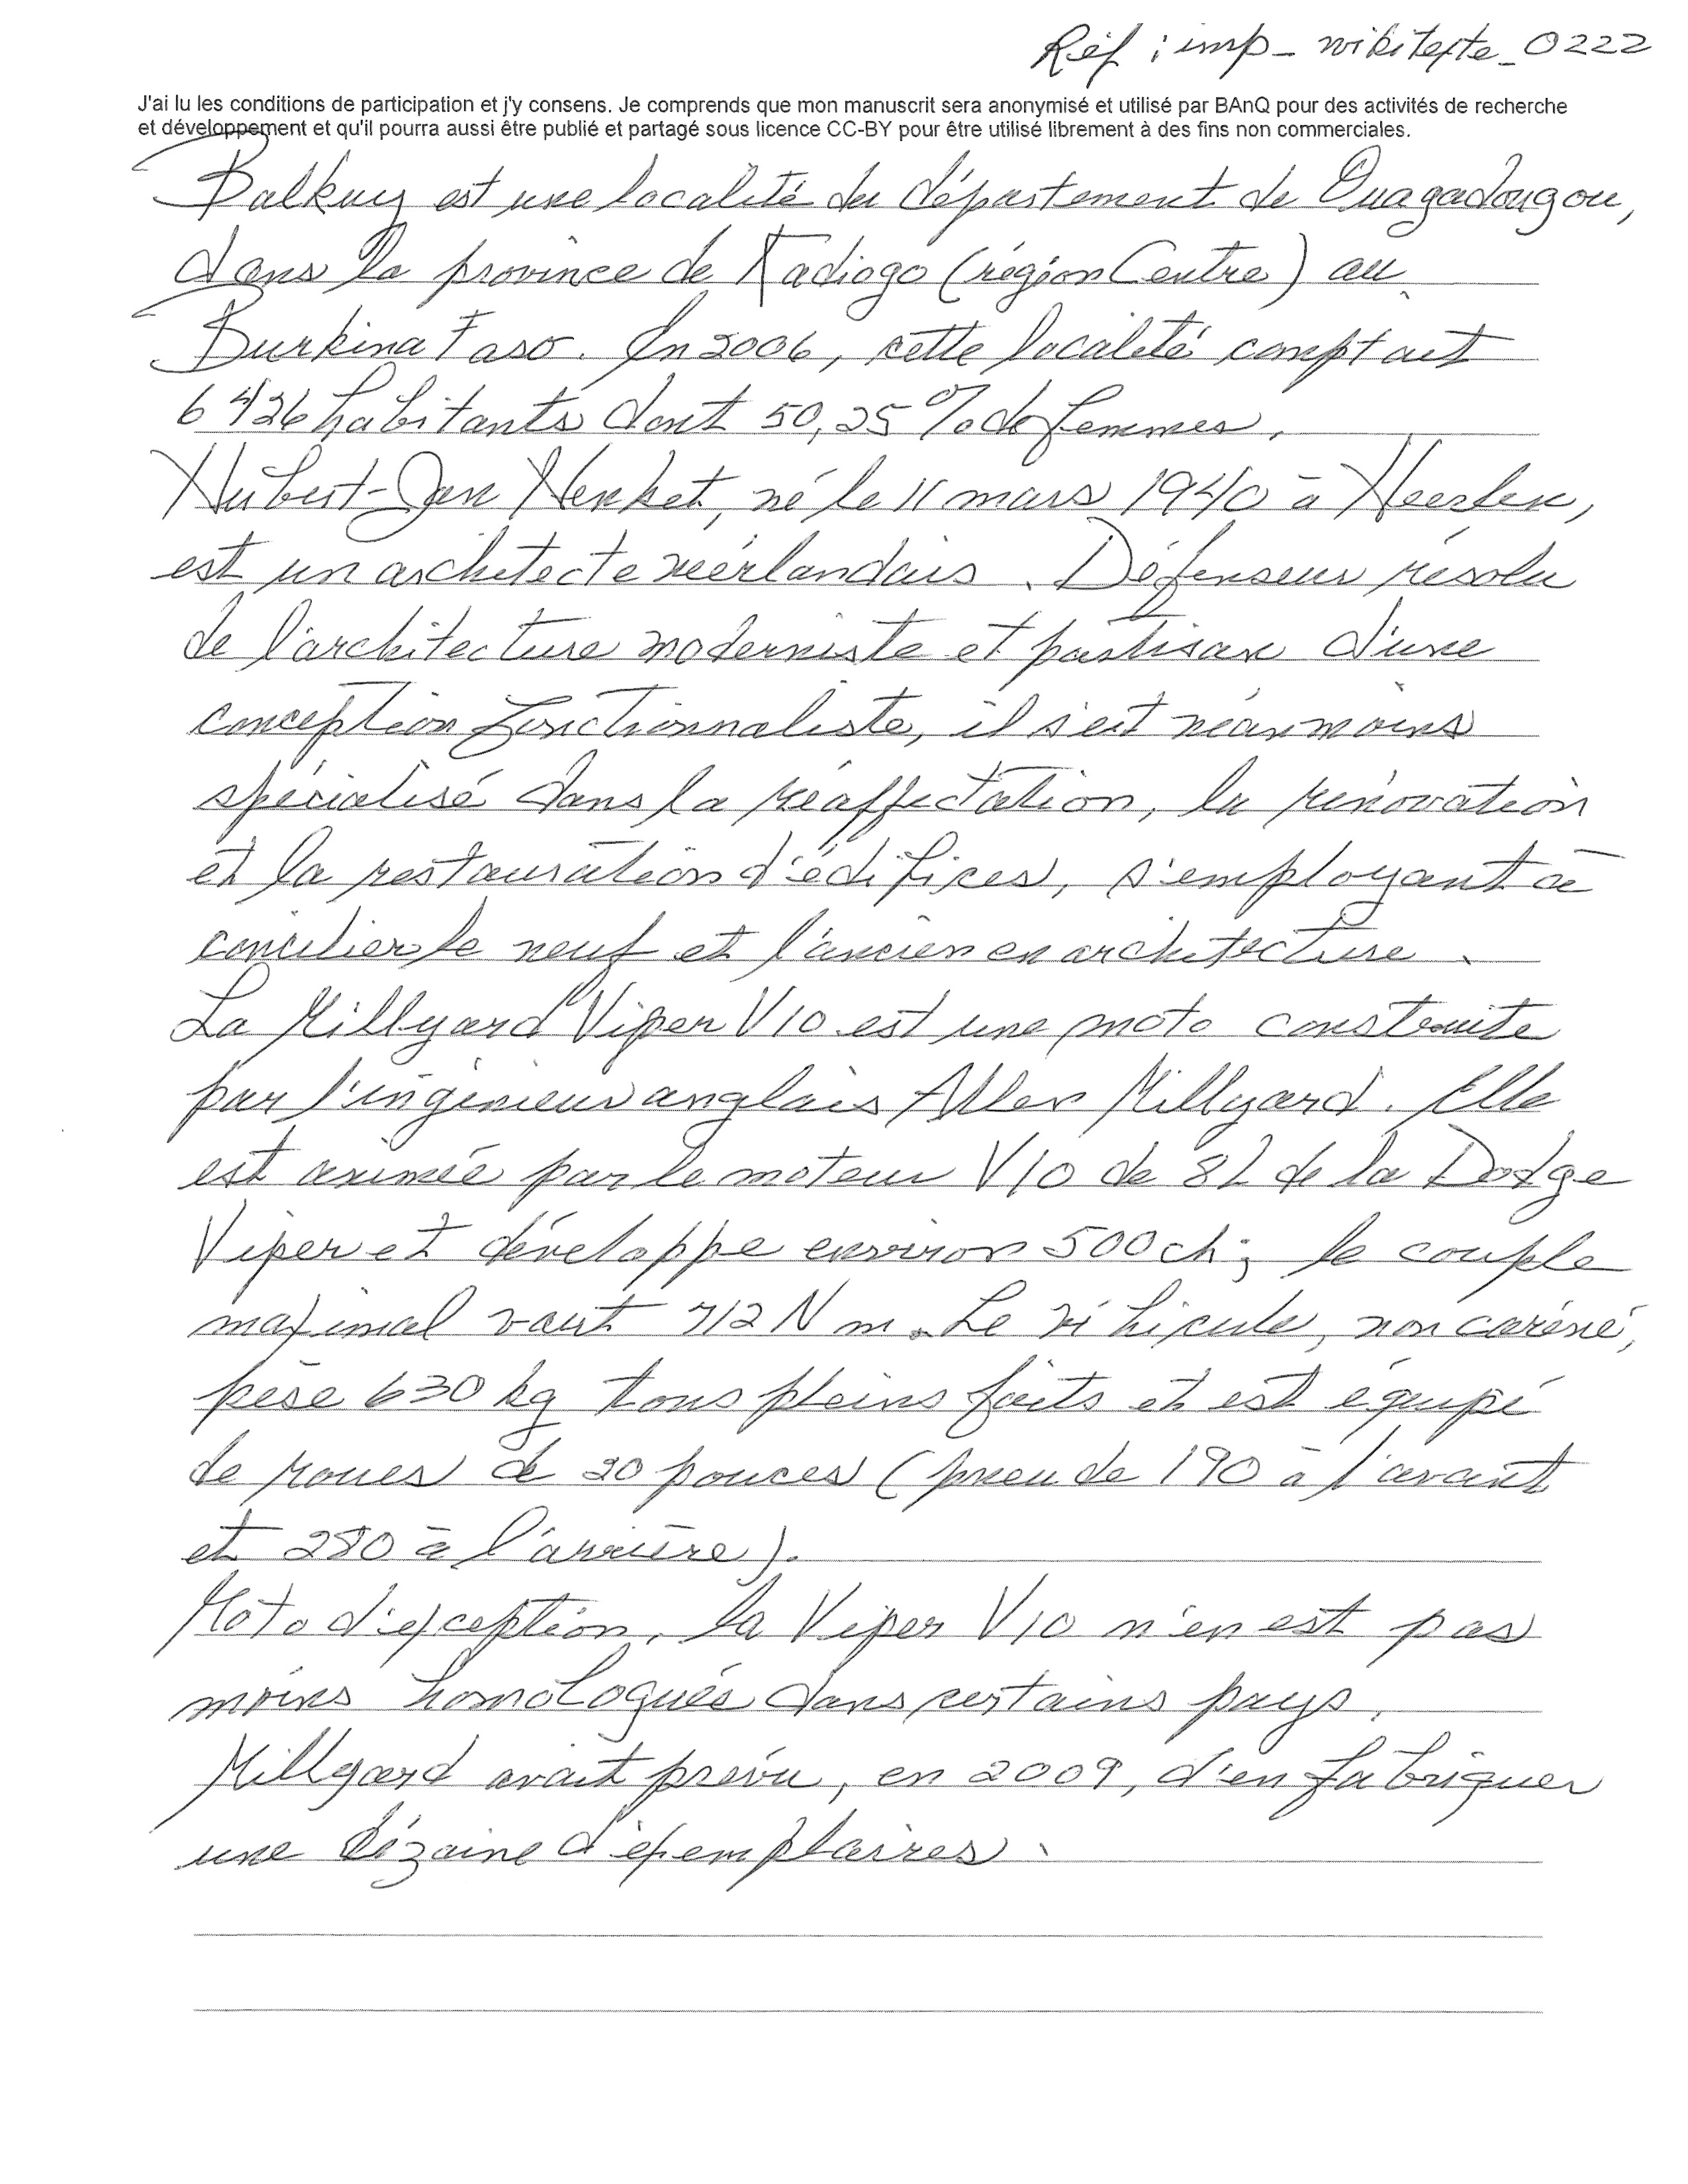 Réf : imp_wikitexte_0222
J'ai lu les conditions de participation et j'y consens. Je comprends que mon manuscrit sera anonymisé et utilisé par BAnQ pour des activités de recherche
et développement et qu'il pourra aussi être publié et partagé sous licence CC-BY pour être utilisé librement à des fins non commerciales.
Balkuy est une localité du département de Ouagadougou,
dans la province de Kadiogo (région Centre) au
Burkina Faso. En 2006, cette localité comptait
6 426 habitants dont 50,25 % de femmes.
Hubert-Jan Henket, né le 11 mars 1940 à Heerlen,
est un architecte néerlandais. Défenseur résolu
de l'architecture moderniste et partisan d'une
conception fonctionnaliste, il s'est néanmoins
spécialisé dans la réaffectation, la rénovation
et la restauration d'édifices, s'employant à
concilier le neuf et l'ancien en architecture.
La Millyard Viper V10 est une moto construite
par l'ingénieur anglais Allen Millyard. Elle
est animée par le moteur V10 de 8 L de la Dodge
Viper et développe environ 500 ch ; le couple
maximal vaut 712 N m. Le véhicule, non caréné,
pèse 630 kg tous pleins faits et est équipé
de roues de 20 pouces (pneu de 190 à l'avant
et 280 à l'arrière).
Moto d'exception, la Viper V10 n'en est pas
moins homologuée dans certains pays.
Millyard avait prévu, en 2009, d'en fabriquer
une dizaine d'exemplaires.